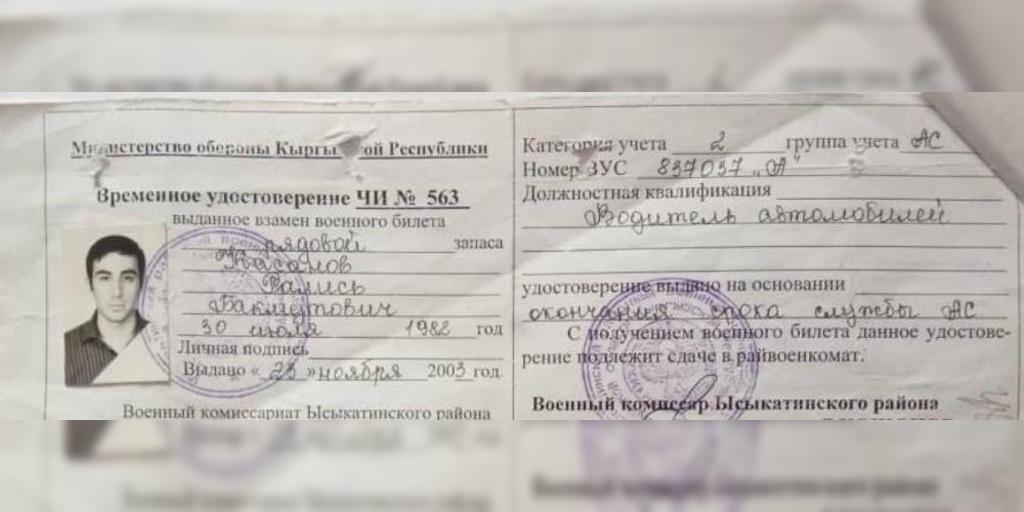 Министерство обороны Кыргызской Республики
Временное удостоверение ЧИ № 563
выданное взамен военного билета
рядовой запаса
Рамись
30 июля 1982 год
Личная подпись
Выдано « 23 » ноября 2003 год
Военный комиссариат Ысыкатинского района
Категория учета 2 группа учета АС
Номер ЗУС 837037 „А"
Должностная квалификация
Водитель автомобилей
удостоверение выдано на основании
окончания срока службы АС
С получением военного билета данное удостове-
рение подлежит сдаче в райвоенкомат.
Военный комиссар Ысыкатинского района